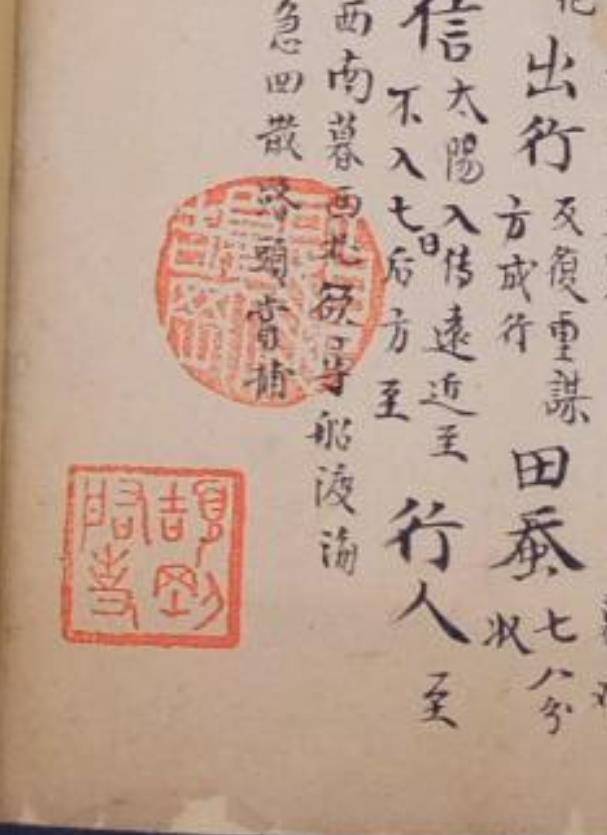 出行
反復重謀
方成行
田蚕
七八分
收
信
太陽入傳遠近至
不入七日后方至
行人
至
西南暮西北欲尋船渡海
急四散路頭賞捕